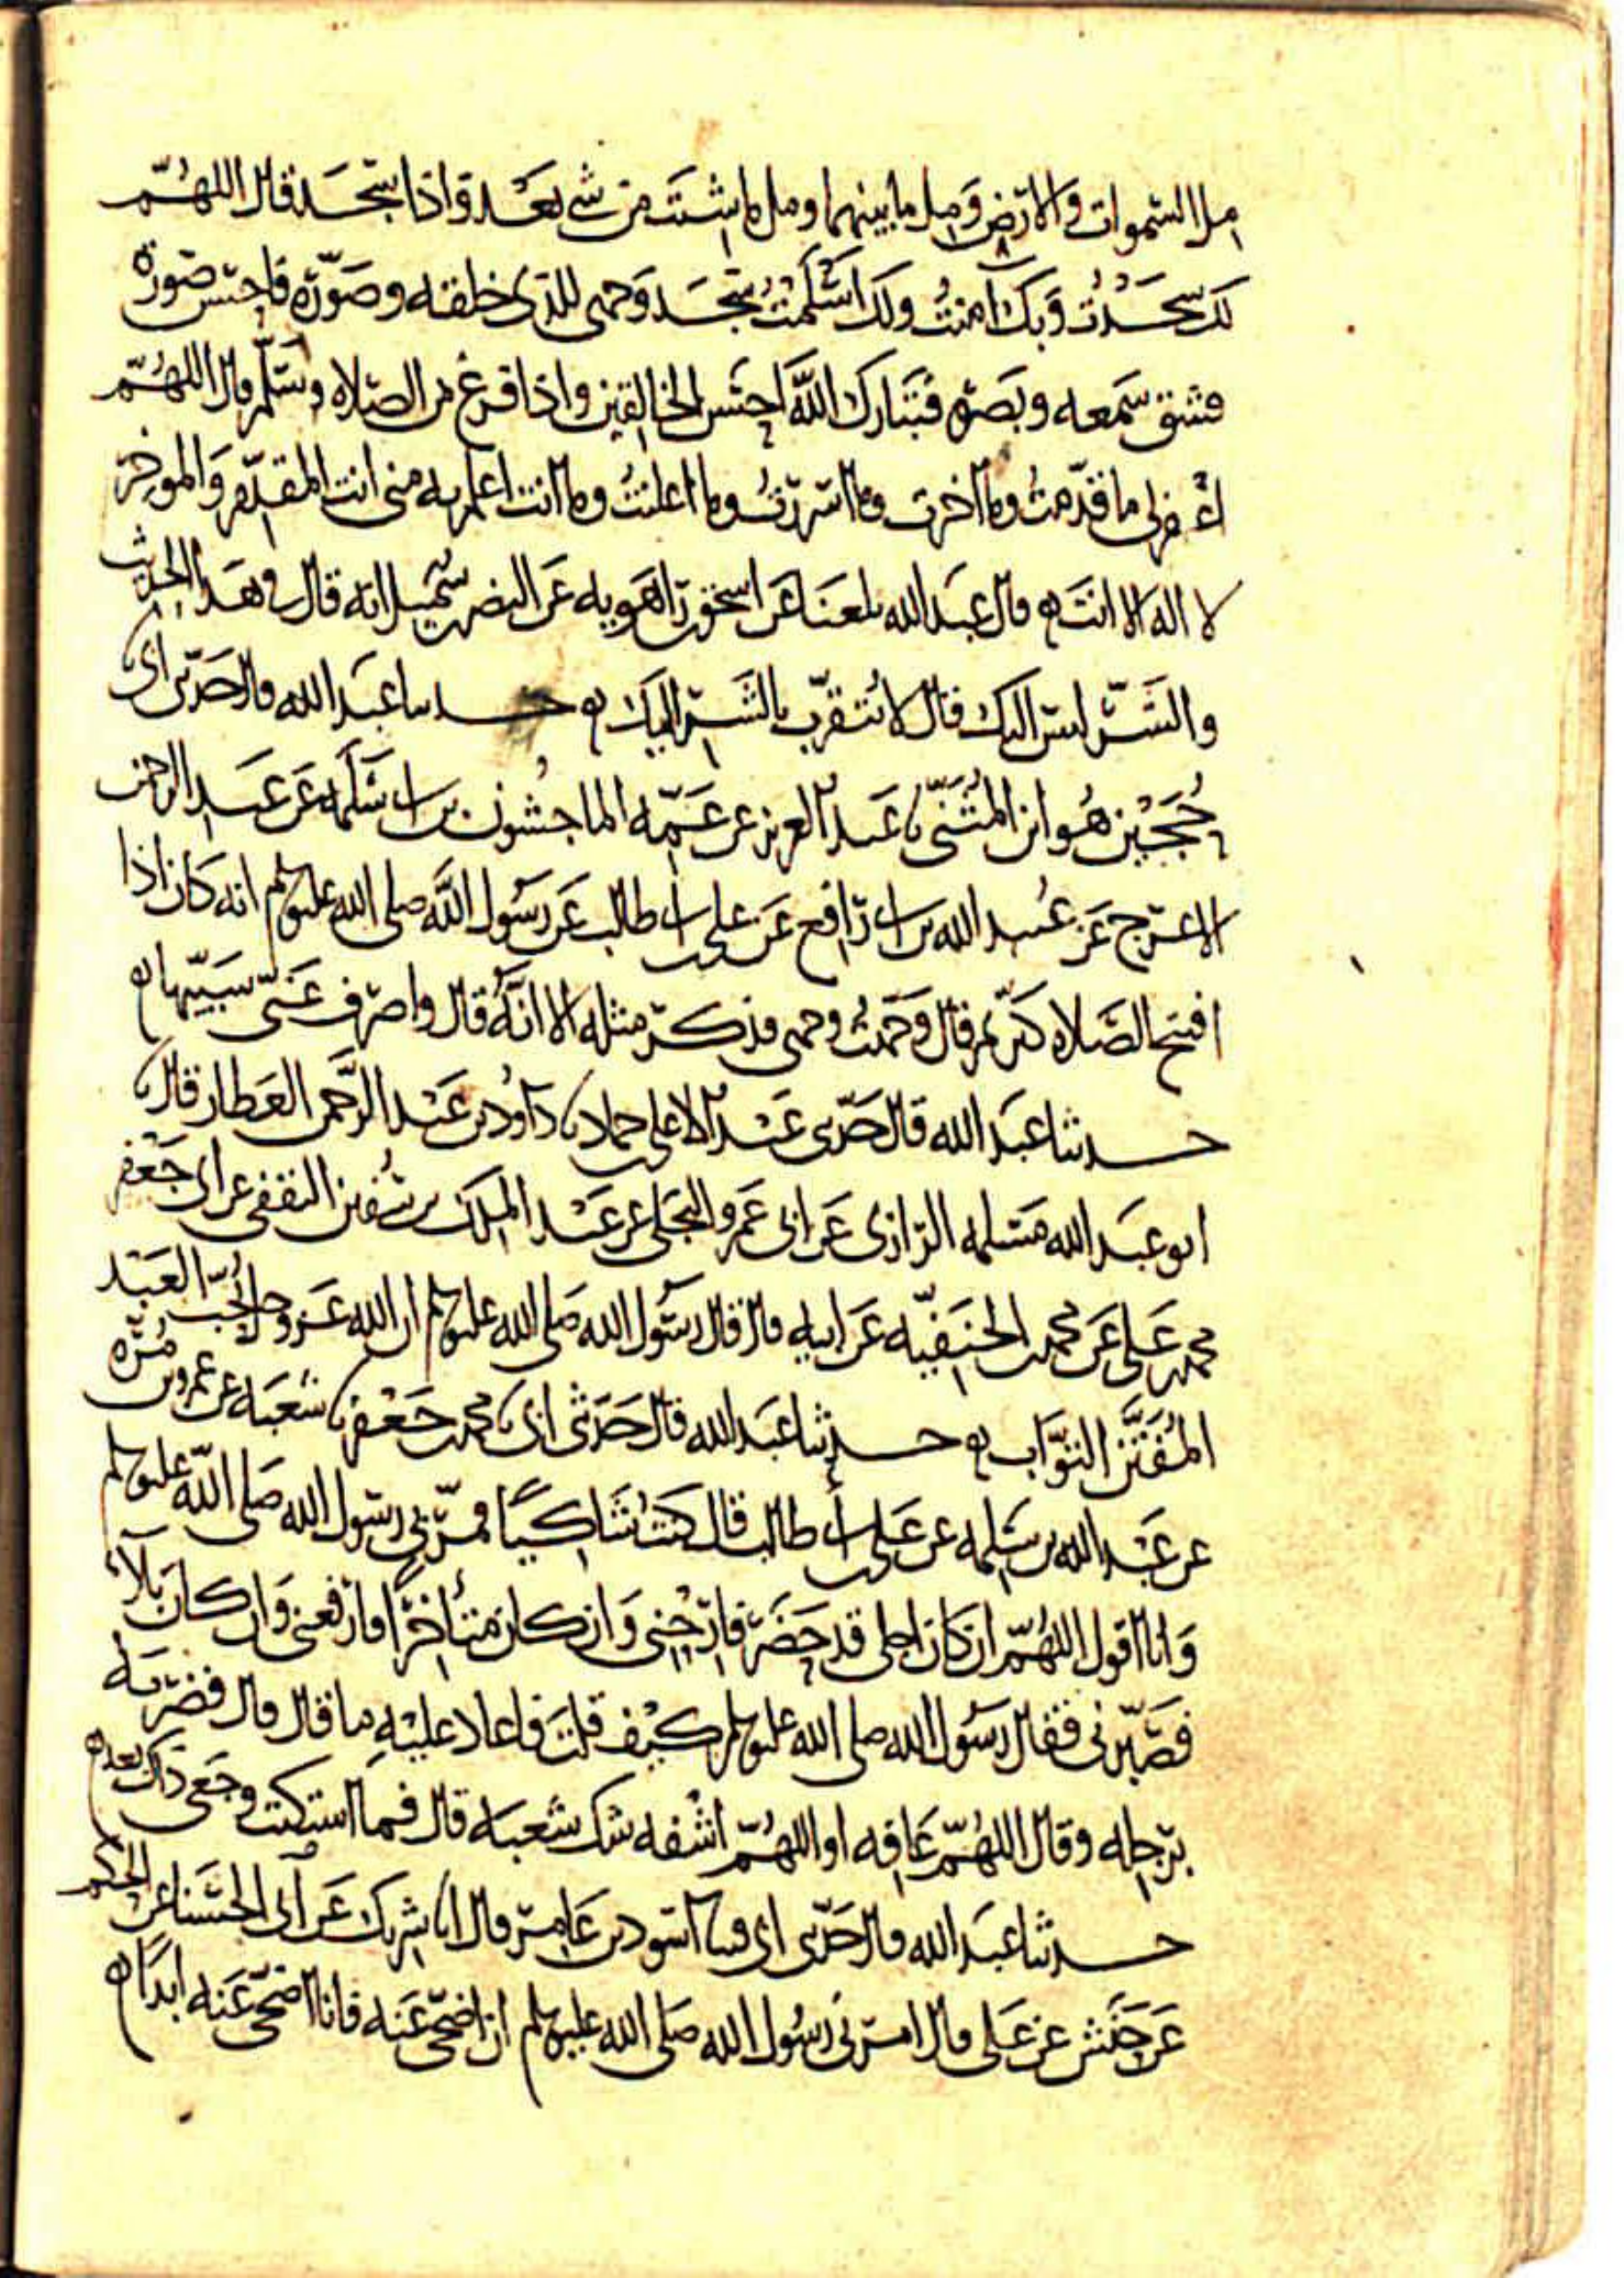 مل السموات والارض ومل ما بينهما ومل ما شئت من شي بعد واذا سجد قال اللهم
لك سجدت وبك آمنت ولك اسلمت سجد وجهى للذى خلقه وصوره فاحسن صوره
فشق سمعه وبصره فتبارك الله احسن الخالقين واذا فرغ من الصلاه وسلم قال اللهم
اغفر لى ما قدمت وما اخرت وما اسررت وما اعلنت وما انت اعلم به منى انت المقدم والموخر
لا اله الا انت ه قال عبد الله بلغنا عن اسحق بن راهويه عن النضر بن شميل انه قال فى هذا الحديث
والشر ليس اليك قال لا يتقرب بالشر اليك ه حدثنا عبد الله قال حدثنى ابى نا
حجين هو ابن المثنى نا عبد العزيز عن عمه الماجشون بن ابى سلمه عن عبد الرحمن
الاعرج عن عبيد الله بن ابى رافع عن على بن ابى طالب عن رسول الله صلى الله عليه وسلم انه كان اذا
افتتح الصلاه كبر ثم قال وجهت وجهى فذكر مثله الا انه قال واصرف عنى سييها ه
حدثنا عبد الله قال حدثنى عبد الاعلى بن حماد نا داود بن عبد الرحمن العطار قال نا
ابو عبد الله مسلمه الرازى عن ابى عمرو البجلى عن عبد الملك بن سفين الثقفى عن ابى جعفر
محمد بن على عن محمد بن الحنفيه عن ابيه قال قال رسول الله صلى الله عليه وسلم ان الله عز وجل يحب العبد
المفتن التواب ه حدثنا عبد الله قال حدثنى ابى نا محمد بن جعفر نا شعبه عن عمرو بن مره
عن عبد الله بن سلمه عن على بن ابى طالب قال كنت شاكيا فمر بى رسول الله صلى الله عليه وسلم
وانا اقول اللهم ان كان اجلى قد حضر فارحنى وان كان متأخرا فارفعنى وان كان بلاء
فصبرنى فقال رسول الله صلى الله عليه وسلم كيف قلت فاعاد عليه ما قال قال فضربه
برجله وقال اللهم عافه او اللهم اشفه شك شعبه قال فما اشتكيت وجعى ذاك بعد ه
حدثنا عبد الله قال حدثنى ابى نا اسود بن عامر قال انا شريك عن ابى الحسنا عن الحكم
عن حنش عن على قال امرنى رسول الله صلى الله عليه وسلم ان اضحى عنه فانا اضحى عنه ابدا ه